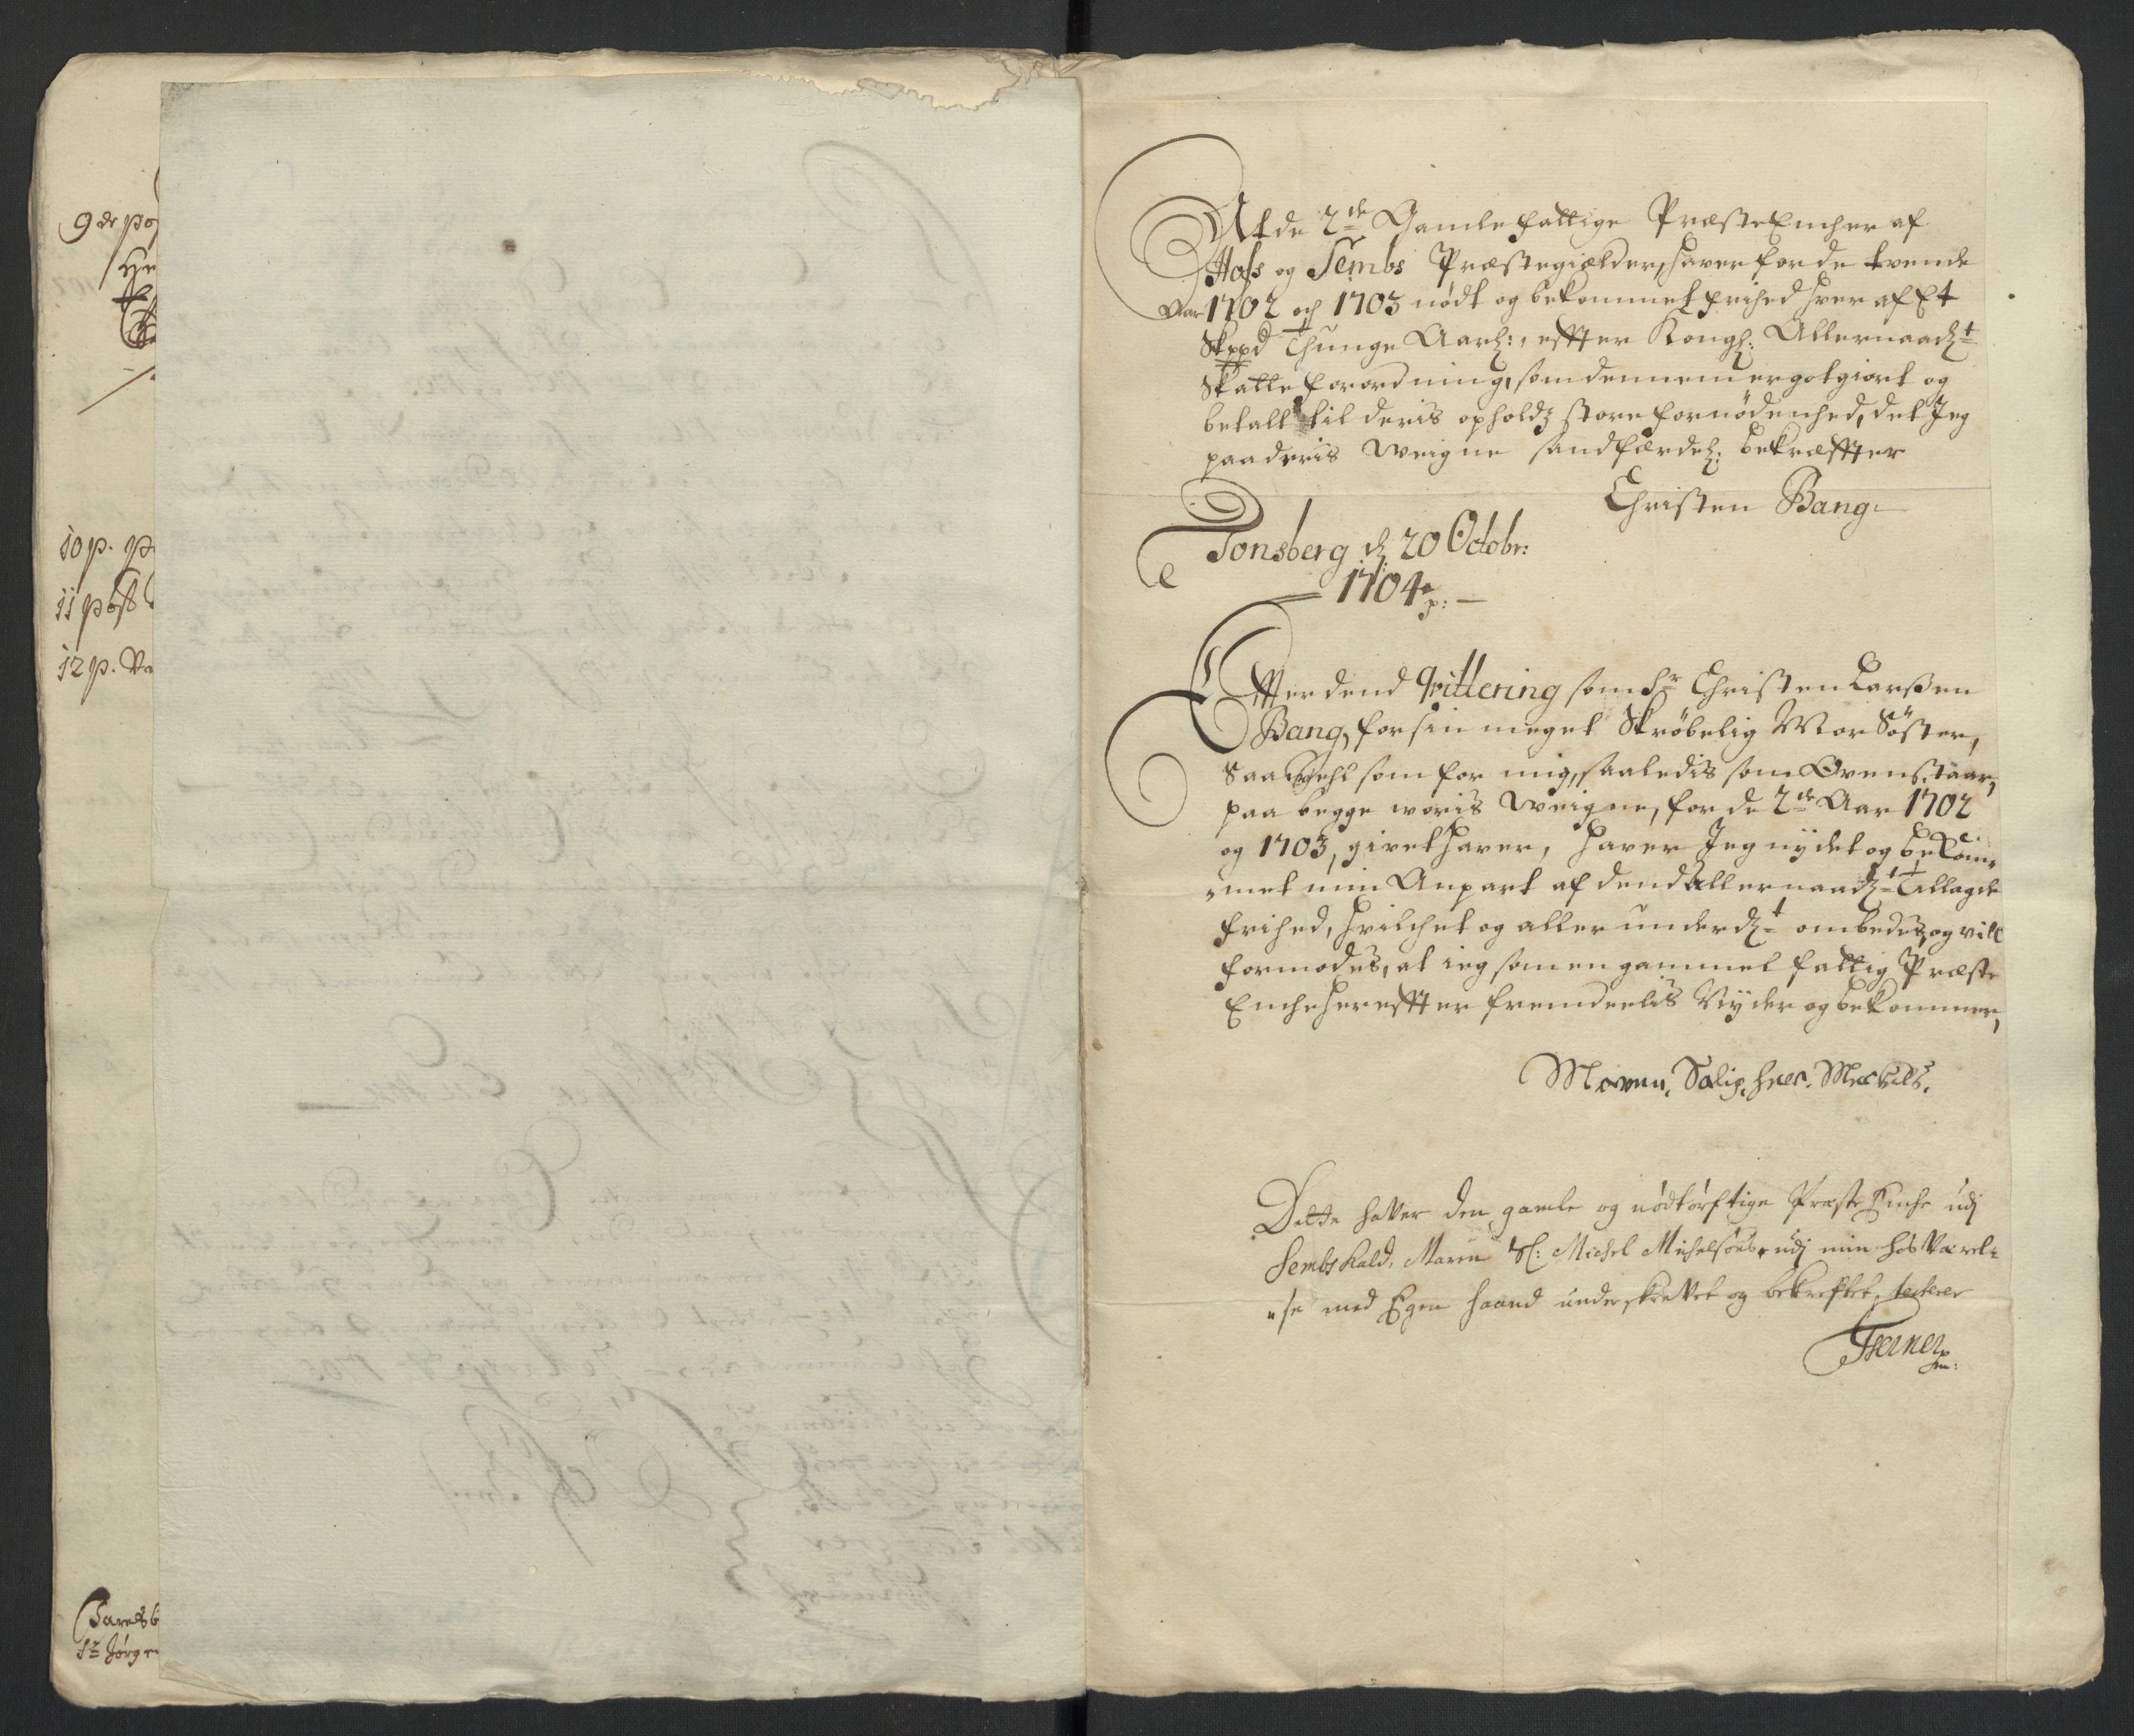 9de po
10 p. p
11 post
12 p. Va
At de 2de Gamle fattige Præste Encher af
Hofs og Sembs Præstegiælder, hafver for de tvende
Aar 1702 och 1703 nødt og bekommet frihed hver af Et
Skppd Thunge Aarl:, effter Kongl: Allernaadst
Skatte forordning, som dennem er gotgiort og
betalt til deris opholdz store fornødenhed, det Jeg
paa deris Weigne sandfærdel: bekræffter
Christen Bang
Tonsberg d 20 Octobr:
1704
Effter dend Qvittering som Hr Christen Larssen
Bang, for sin meget Skrøbelig Mor Søster,
Saa vehl som for mig, saaledis som Ovenstaar,
paa begge woris Weigne, for de 2de Aar 1702
og 1703, givet haver, haver Jeg nydet og bekom-
met min Anpart af dend Allernaadst Tillagde
frihed, hvilchet og aller underdst ombedes, og vill
formodes, at ieg som en gammel fattig Præste
Enche hereffter fremdeelis Nyder og bekommer,
Maren, Salig, her,
Dette haver den gamle og nødtørftige Præste Enche udj
Sembs Kald, Maren Sl: Michel Michelsøns, udj min hos Værel-
se med Egen haand underskrevet og bekreftet, testerer